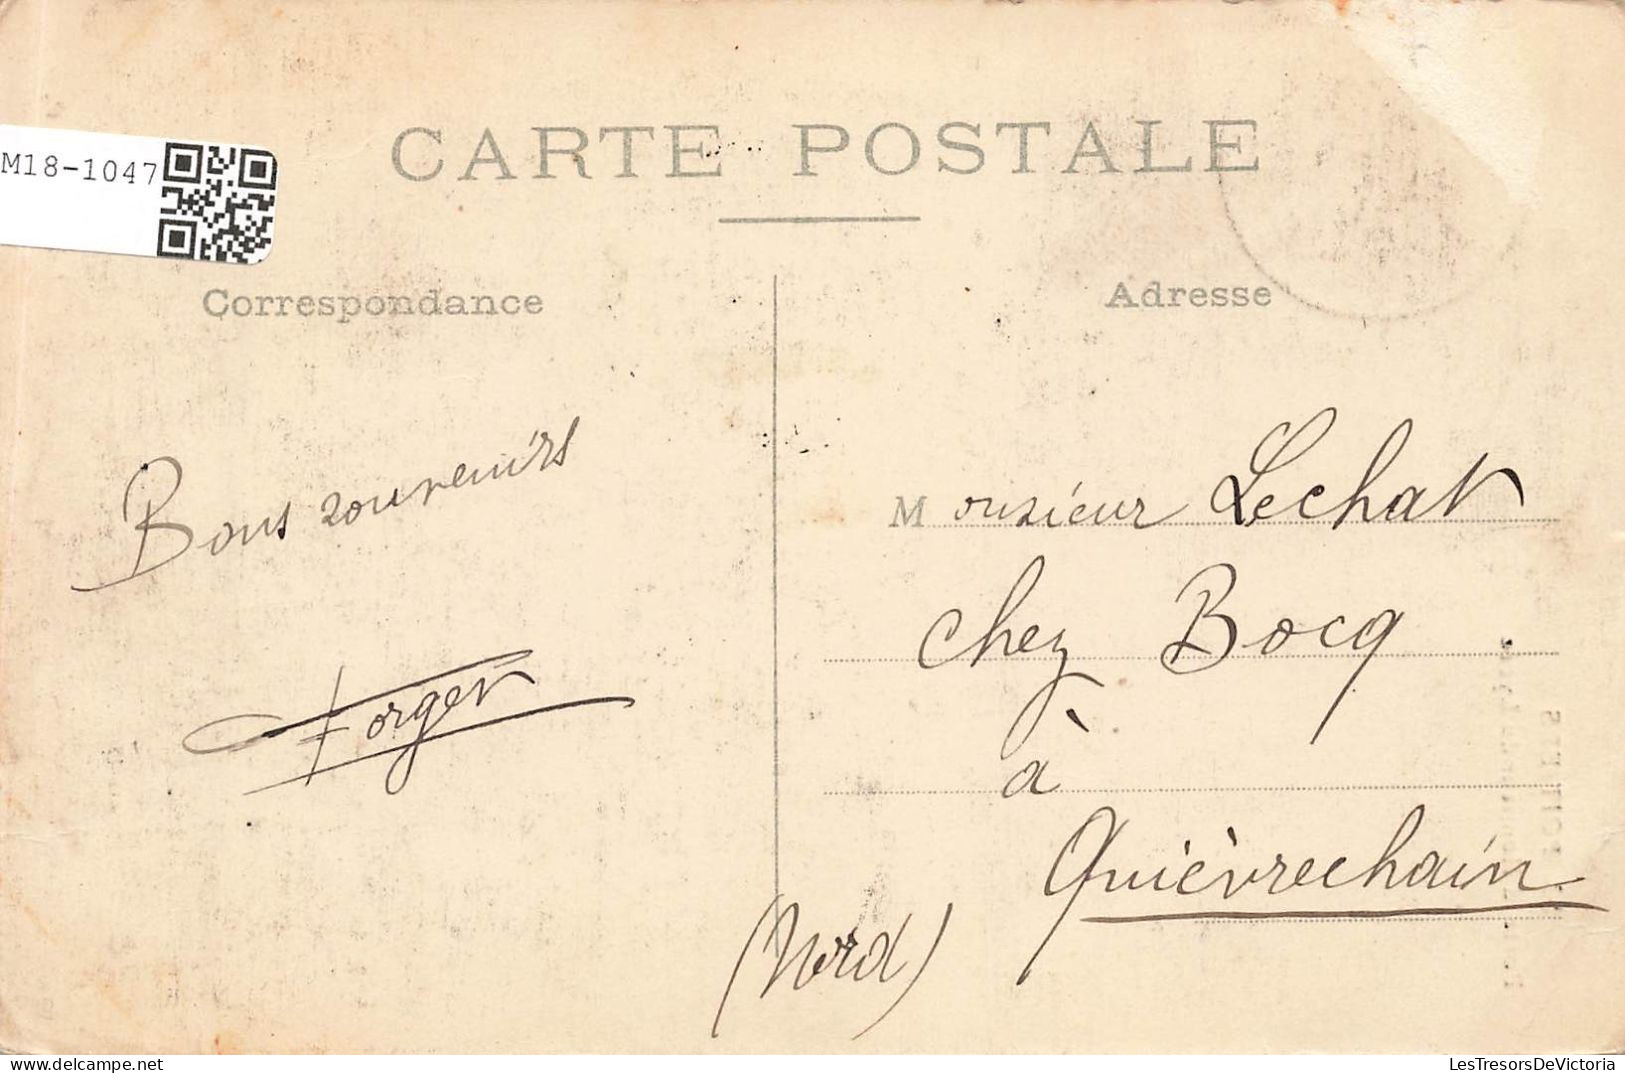 M18-1047
CARTE POSTALE
Correspondance
Adresse
Bons souvenirs
Forget
Monsieur Lechat
chez Bocq
à
Quièvrechain
(Nord)
LesTresorsDeVictoria